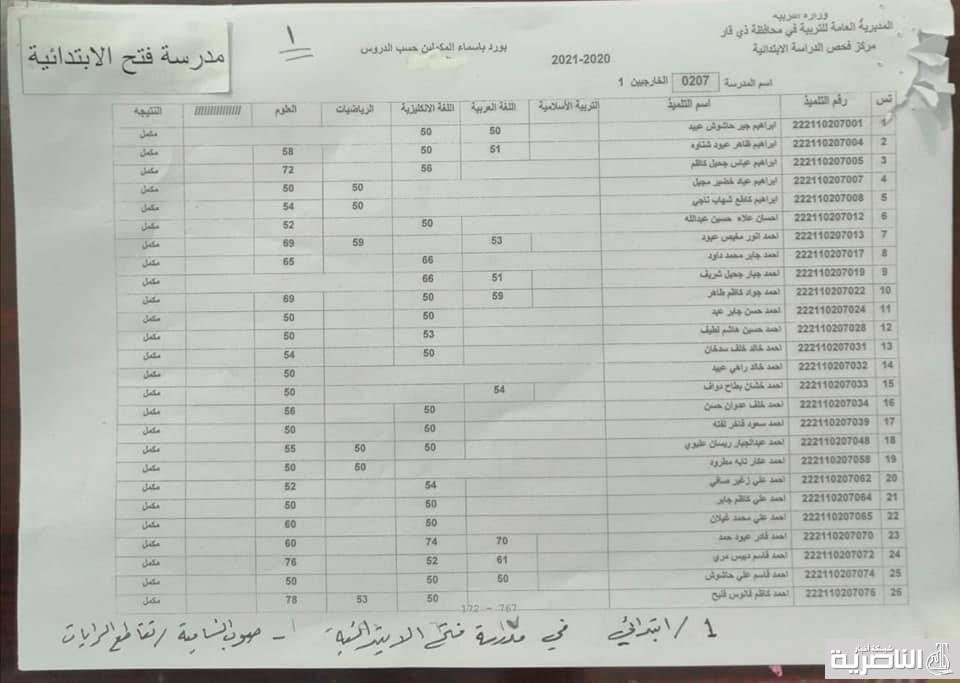 وزارة التربية
المديرية العامة للتربية في محافظة ذي قار
مركز فحص الدراسة الابتدائية
١
مدرسة فتح الابتدائية
بورد باسماء المكملين حسب الدروس
2021-2020
اسم المدرسة 0207 الخارجيين 1
تس رقم التلميذ اسم التلميذ التربية الأسلامية اللغة العربية اللغة الانكليزية الرياضيات العلوم //////////////// النتيجه
1 222110207001 ابراهيم جبر حاشوش عبيد 50 50 مكمل
2 222110207004 ابراهيم ظاهر عبود شناوه 51 50 58 مكمل
3 222110207005 ابراهيم عباس جحيل كاظم 56 72 مكمل
4 222110207007 ابراهيم عياد خضير مجبل 50 50 مكمل
5 222110207008 ابراهيم كاطع شهاب ناجي 50 54 مكمل
6 222110207012 احسان علاء حسين عبدالله 50 52 مكمل
7 222110207013 احمد انور مغيص عبود 53 59 69 مكمل
8 222110207017 احمد جابر محمد داود 66 65 مكمل
9 222110207019 احمد جبار جحيل شريف 51 66 مكمل
10 222110207022 احمد جواد كاظم طاهر 59 50 69 مكمل
11 222110207024 احمد حسن جابر عبد 50 50 مكمل
12 222110207028 احمد حسين هاشم لطيف 53 50 مكمل
13 222110207031 احمد خالد خلف سدخان 50 54 مكمل
14 222110207032 احمد خالد راهي عبيد 50 مكمل
15 222110207033 احمد خشان بطاح دواف 54 50 مكمل
16 222110207034 احمد خلف عدوان حسن 50 56 مكمل
17 222110207039 احمد سعود فاخر لفته 50 50 مكمل
18 222110207048 احمد عبدالجبار ريسان عليوي 50 50 55 مكمل
19 222110207058 احمد عكار تايه مطرود 50 50 مكمل
20 222110207062 احمد علي زغير صافي 54 52 مكمل
21 222110207064 احمد علي كاظم جابر 50 50 مكمل
22 222110207065 احمد علي محمد غيلان 50 60 مكمل
23 222110207070 احمد قادر عبود حمد 70 74 60 مكمل
24 222110207072 احمد قاسم دبيس مري 61 52 76 مكمل
25 222110207074 احمد قاسم علي حاشوش 50 50 50 مكمل
26 222110207076 احمد كاظم فانوس فتيح 50 53 78 مكمل
172 - 767
1 / ابتدائي في مدرسة فتح الابتدائية - صوب الشامية / تقاطع الرايات
شبكة أخبار
الناصرية